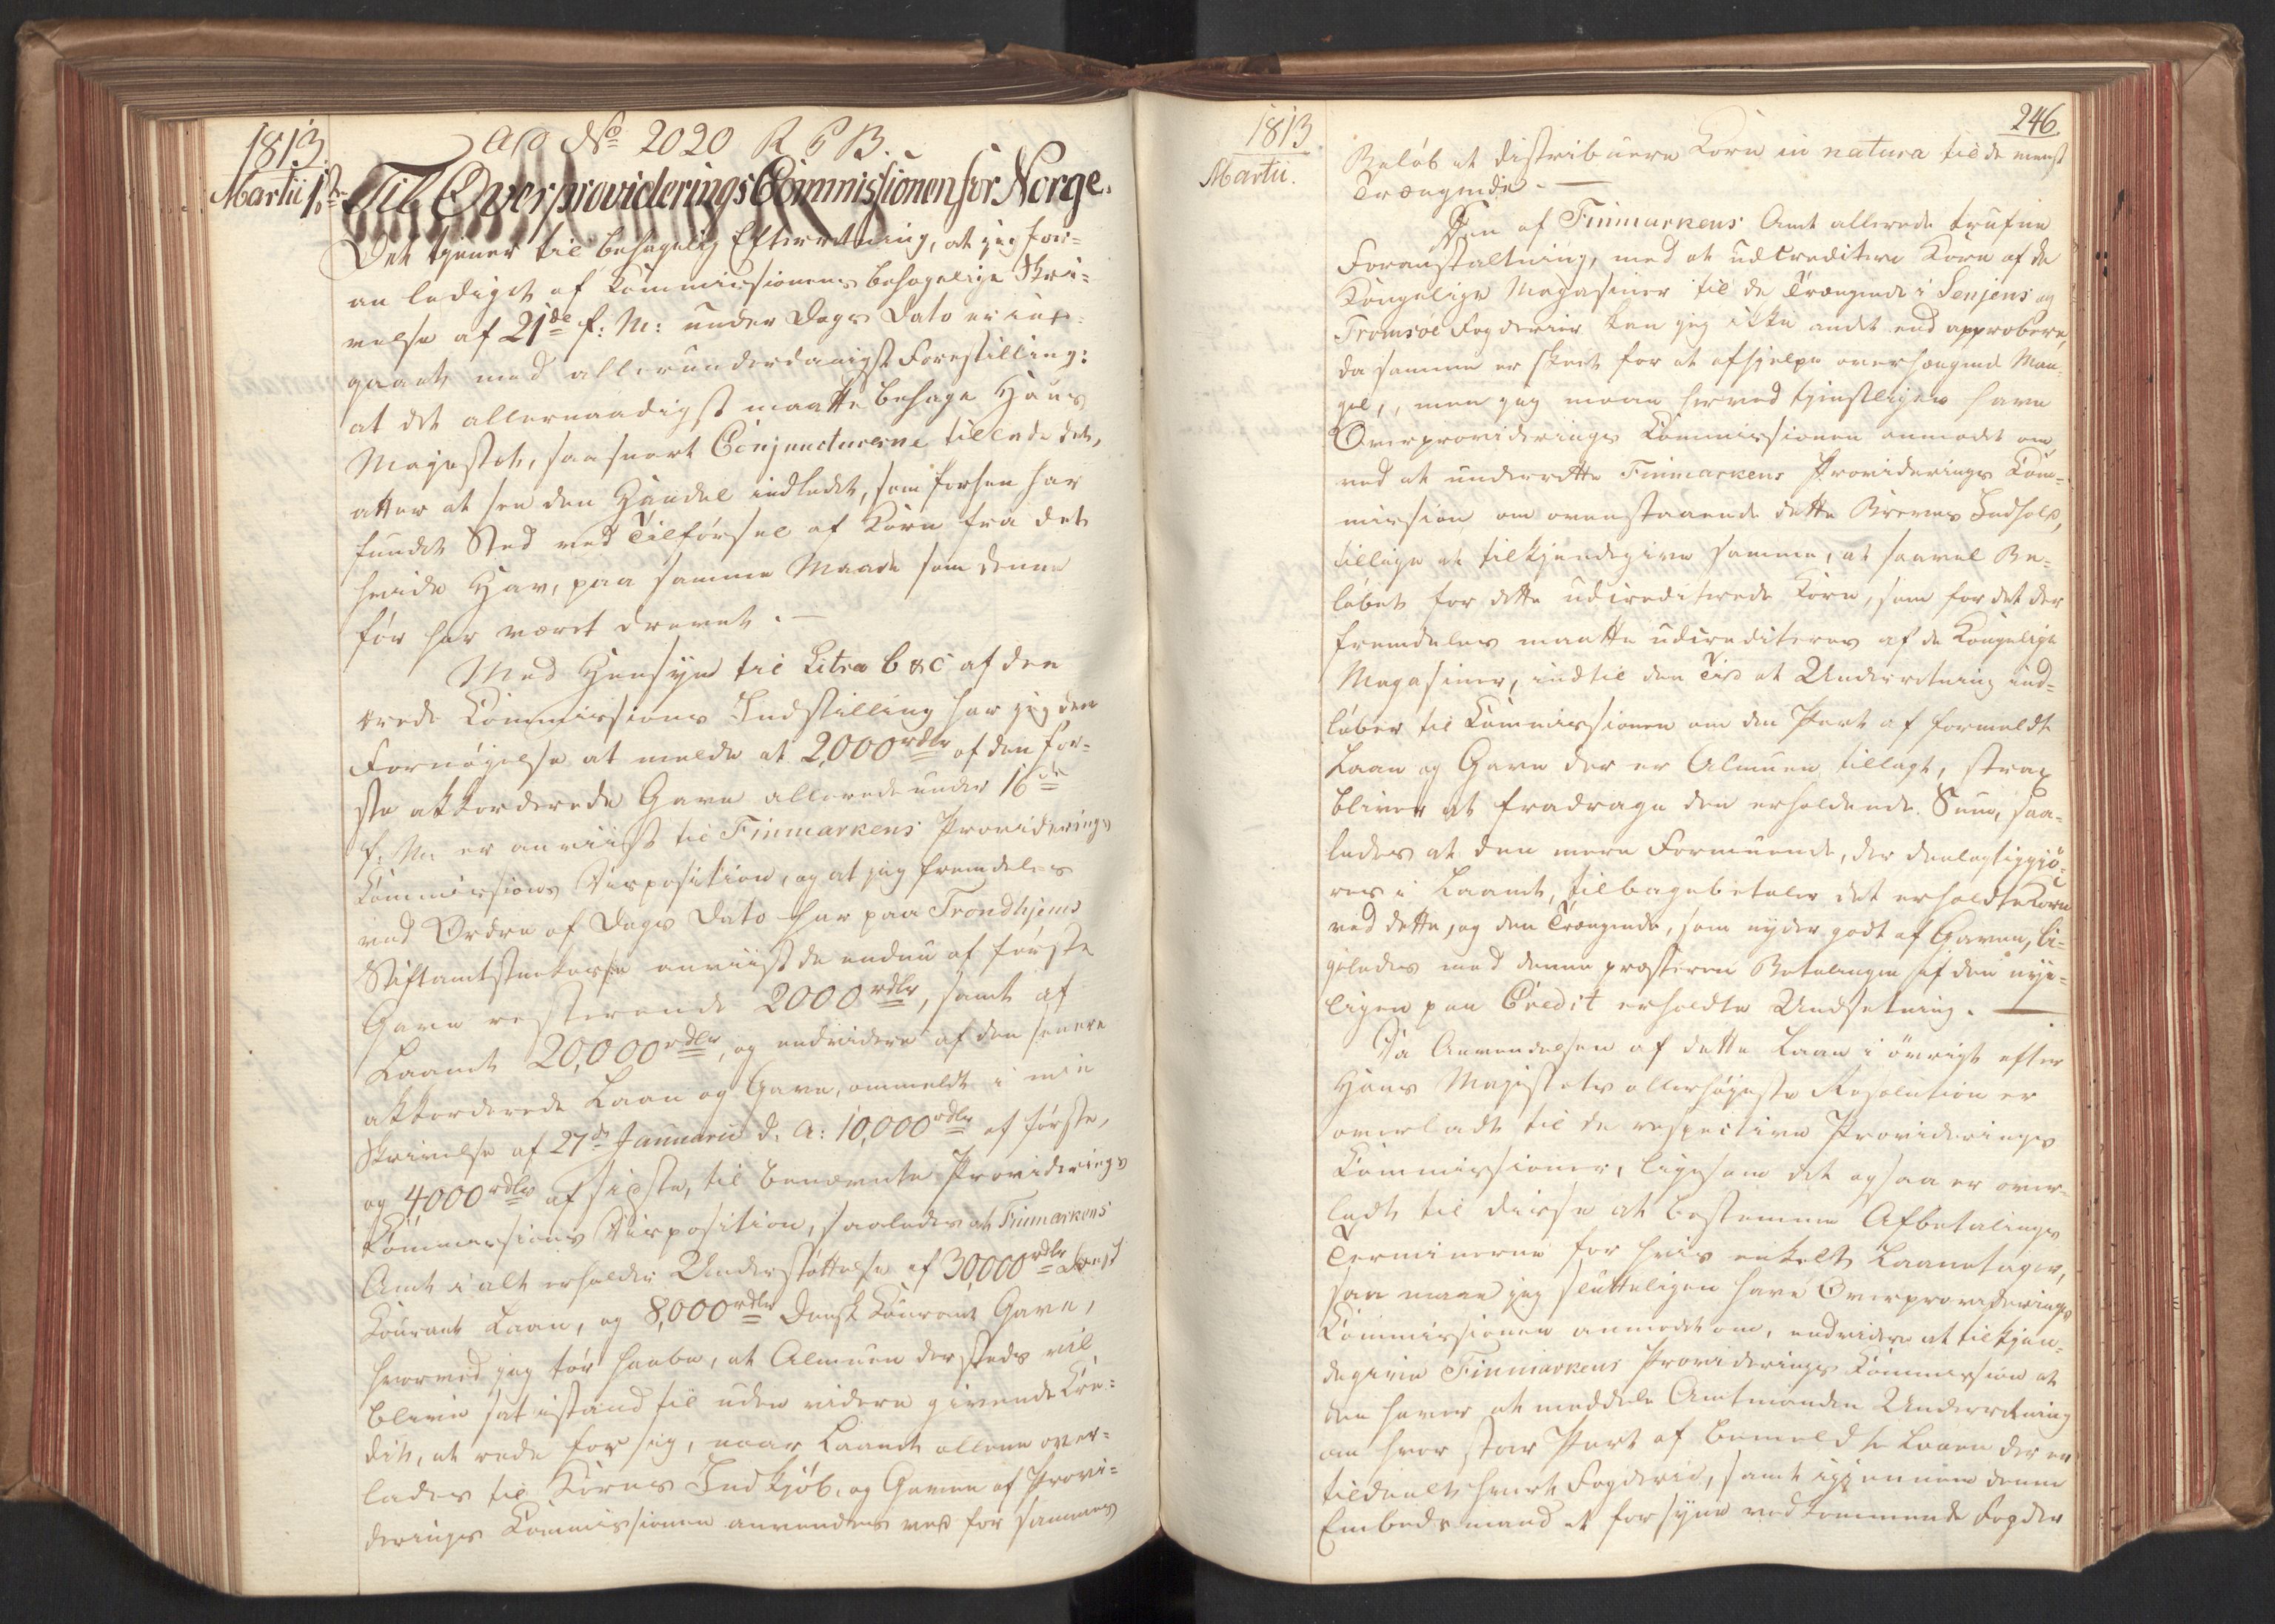 1813.
Martii 1ste
Ad No 2020 R P B.
Til Overproviderings Commissionen for Norge.
Det tjener til behagelig Efterretning, at jeg for=
anlediget af Kommissionens behagelige Skri=
velse af 21de f: M: under Dags Dato er ind=
gaaet med allerunderdanigst Forestilling:
at det allernaadigst maatte behage Hans
Majestet, saasnart Conjuncturerne tillade det,
atter at see den Handel indledet, som forhen har
fundet Sted ved Tilførsel af Korn fra det
hvide Hav, paa samme Maade som denne
før har været drevet. —
Med Hensyn til Litra b & c af den
Kommissions Indstilling har jeg den
Fornøjelse at melde at 2,000 rdlr af den før=
ste akkorderede Gave allerede under 16de
f: M: er anviist til Finmarkens Providerings
Kommissions Disposition, og at jeg fremdeles
ved Ordre af Dags Dato har paa Trondhjems
Stiftamtstuekasse anviist de endnu af første
Gave resterende 2000 rdlr, samt af
Laanet 20,000 rdlr, og endvidere af den senere
akkorderede Laan og Gave, ommeldt i min
Skrivelse af 27de Januarii d: A: 10,000 rdlr af første,
og 4000 rdlr af sidste, til benævnte Providerings
Kommissions Disposition, saaledes at Finmarkens
Amt i alt erholder Understøttelse af 30,000 rdlr Dansk
Kourant Laan, og 8,000 rdlr Dansk Kourant Gave,
hvorved jeg tør haabe, at Almuen dersteds vil
blive sat istand til uden videre givende Cre=
dit, at rede for sig, naar Laanet allene over=
lades til Korns Indkjøb, og Gaven af Provi=
derings Kommissionen anvendes ved for sammes
1813
Martii.
246.
Beløb at distribuere Korn in natura til de meest
Trængende. —
Den af Finmarkens Amt allerede trufne
Foranstaltning, med at udcreditere Korn af de
Kongelige Magasiner til de Trængende i Senjens og
Tromsøe Fogderier kan jeg ikke andet end approbere,
da samme er skeet for at afhjelpe overhængende Man=
gel, men jeg maae herved tjenstligen have
Overproviderings Kommissionen anmodet om
ved at underrette Finmarkens Providerings Kom=
mission om ovenstaaende dette Brevs Indhold,
tillige at tilkjendegive samme, at saavel Be=
løbet for dette udcrediterede Korn, som for det der
fremdeles maatte udcrediteres af de Kongelige
Magasiner, indtil den Tid at Underretning ind=
løber til Kommissionen om den Part af formeldte
Laan og Gave der er Almuen tillagt, strax
bliver at fradrage den erholdende Sum, saa=
ledes at den mere Formuende, der deelagtiggjø=
res i Laanet, tilbagebetaler det erholdte Korn
ved dette, og den Trængende, som nyder godt af Gaven, li=
geledes med denne præsterer Betalingen af den nye=
ligen paa Credit erholdte Undsetning. —
Da Anvendelsen af dette Laan i øvrigt efter
Hans Majestets allerhøjeste Resolution er
overladt til de respective Providerings
Kommissioner, ligesom det ogsaa er over=
ladt til disse at bestemme Afbetalings
Terminerne for hver enkelt Laantager,
saa maae jeg slutteligen have Overproviderings
Kommissionen anmodet om, endvidere at tilkjen=
degive Finmarkens Providerings Kommission at
den haver at meddele Amtmanden Underretning
om hvor stor Part af bemeldte Laan der er
tildeelt hvert Fogderie, samt igjennem denne
Embedsmand at forsyne vedkommende Fogder